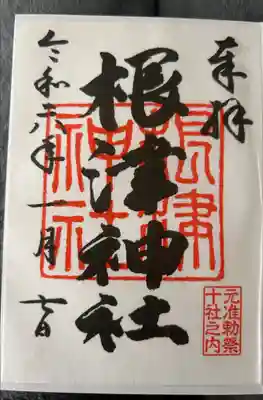 奉拝
根津神社
根津
神社
元准勅祭
十社之内
令和六年一月 日